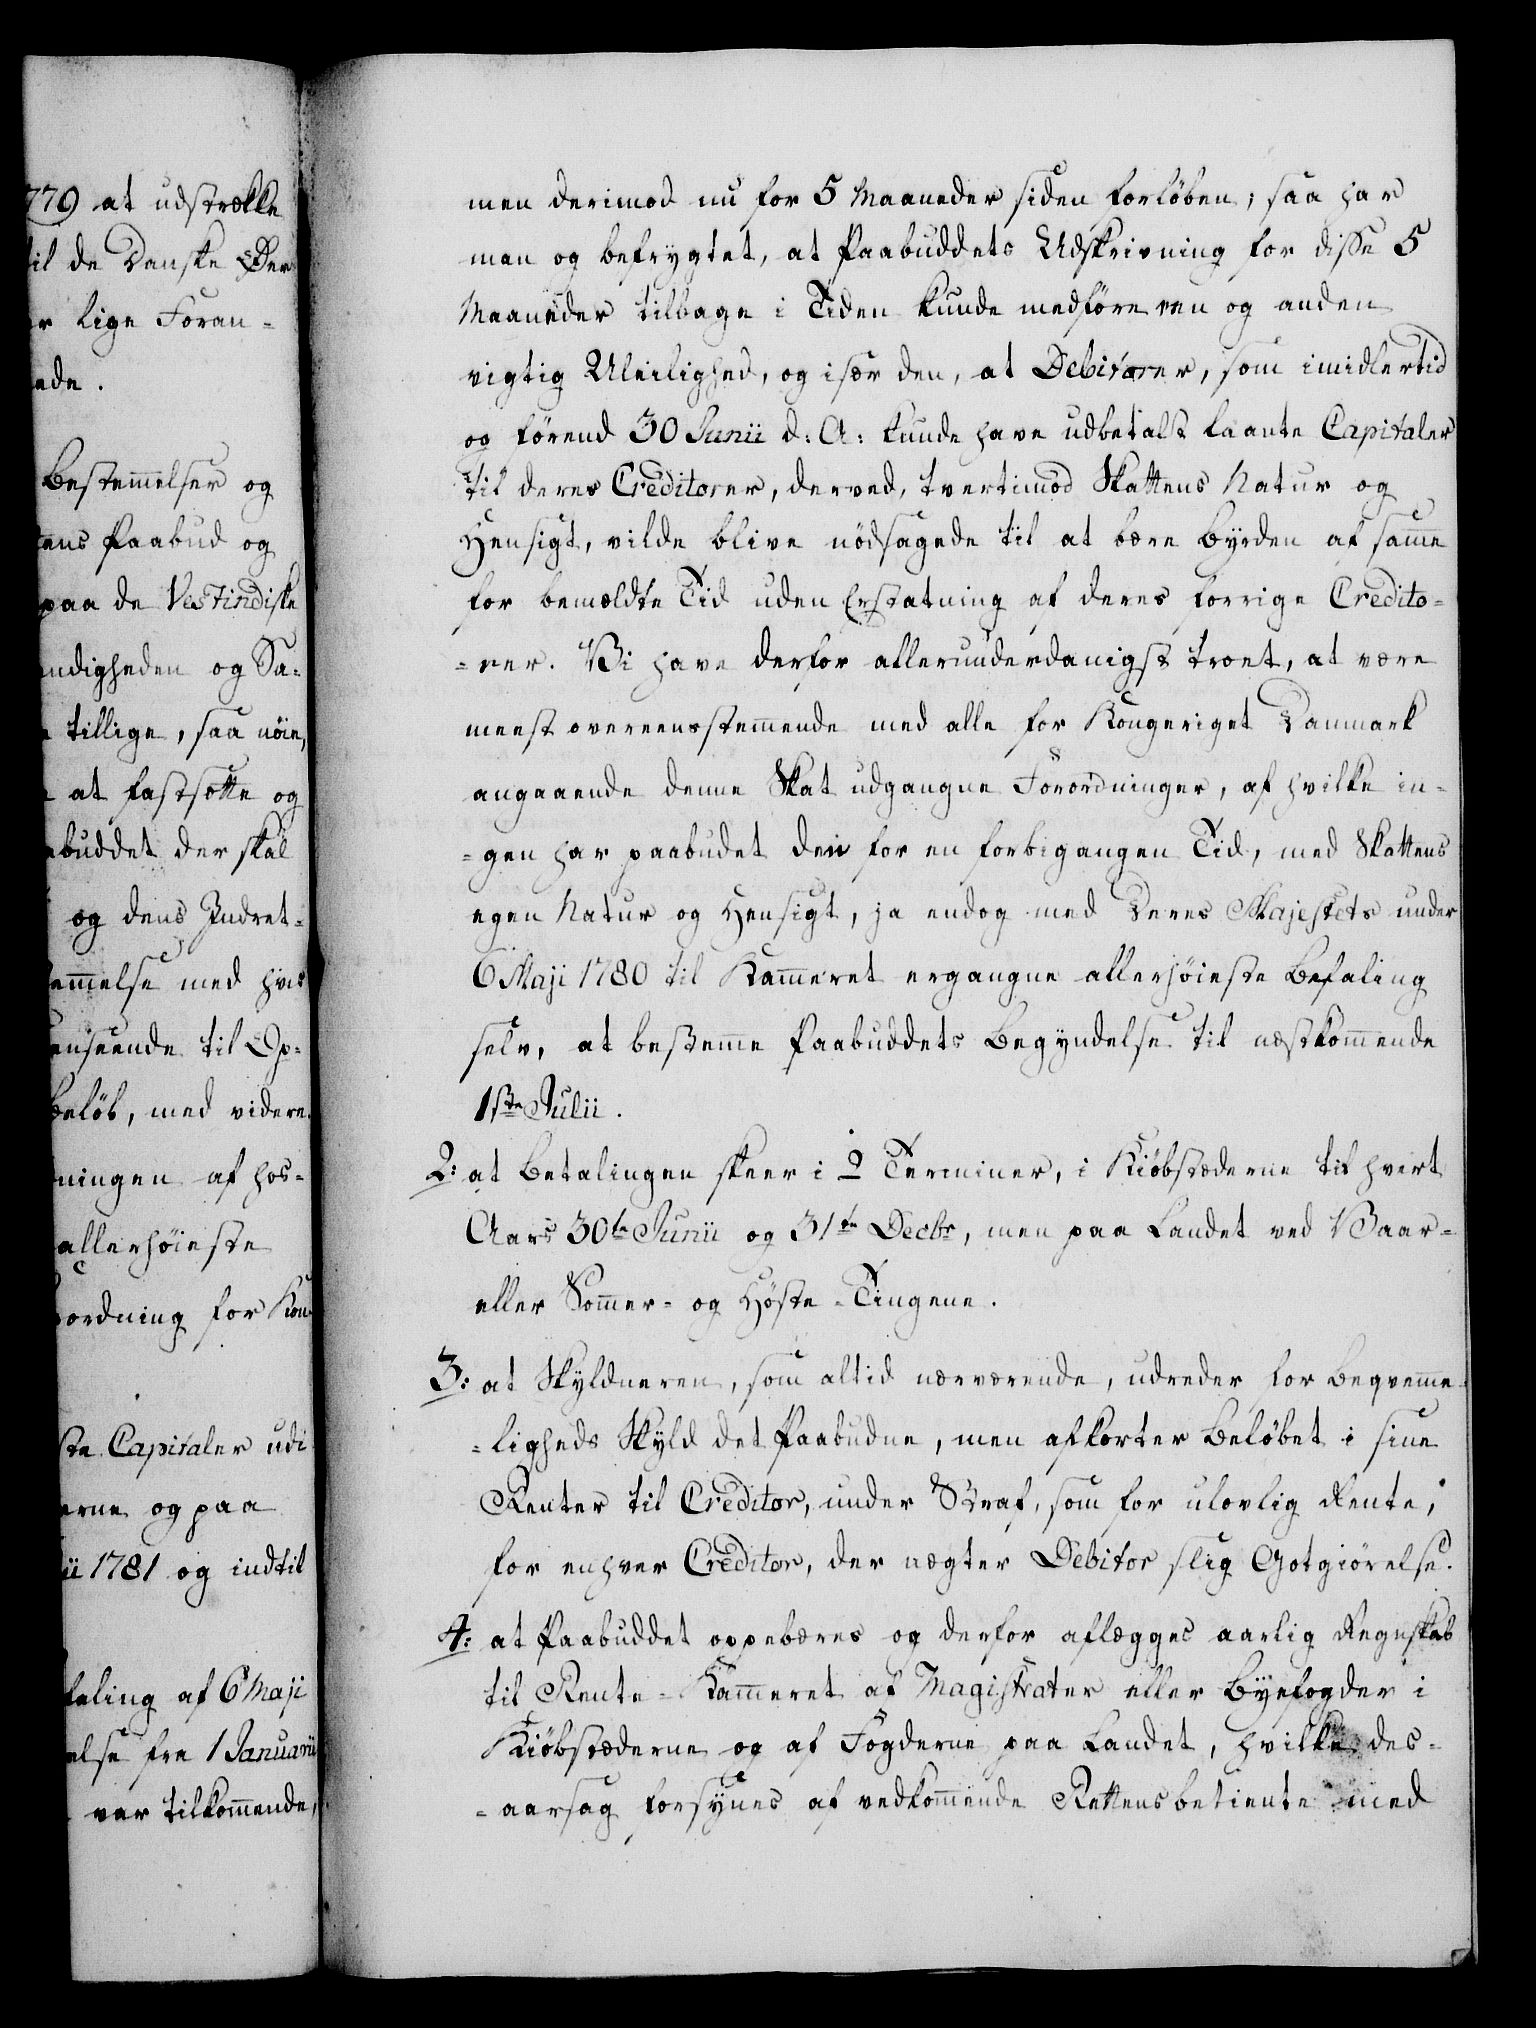 779 at udstrække
til de Danske Øer
er lige Foran-
ede.
Bestem̄elser og
tens Paabud og
paa de Vestindiske
endigheden og Sa-
tillige, saa nöie,
at fastsætte og
abuddet der skal
og dens Indret-
em̄else med hvis
enseende til Op-
Belöb, med videre.
ningen af hos-
allerhöieste
ordning for Kon-
ste Capitaler udi
erne og paa
ii 1781 og indtil
faling af 6 Maji
else fra 1 Januarii
var tilkom̄ende,
men derimod nu for 5 Maaneder siden forlöben; saa har
man og befrygtet, at Paabuddets Udskrivning for disse 5
Maaneder tilbage i Tiden kunde medföre een og anden
vigtig Uleilighed, og især den, at Debitorer, som imidlertid
og förend 30 Junii d: A: kunde have udbetalt laante Capitaler
til deres Creditorer, derved, tvertimod Skattens Natur og
Hensigt, vilde blive nödsagede til at bære Byrden af sam̄e
for bemældte Tid uden Erstatning af deres forrige Credito-
-rer. Vi have derfor allerunderdanigst troet, at være
meest overeensstem̄ende med alle for Kongeriget Danmark
angaaende denne Skat udgangne Forordninger, af hvilke in-
-gen har paabudet den for en forbigangen Tid, med Skattens
egen Natur og Hensigt, ja endog med Deres Majestets under
6 Maji 1780 til Kam̄eret ergangne allerhöieste Befaling
selv, at bestem̄e Paabuddets Begyndelse til næstkom̄ende
1ste Julii.
2: at Betalingen skeer i 2 Terminer, i Kiöbstæderne til hvert
Aars 30te Junii og 31te Decbr, men paa Landet ved Vaar-
eller Som̄er- og Höste-Tingene.
3: at Skyldneren, som altid nærværende, udreder for Beqvem̄e-
-ligheds Skyld det Paabudne, men afkorter Belöbet i sine
Renter til Creditor, under Straf, som for ulovlig Rente,
for enhver Creditor, der nægter Debitor slig Godtgiörelse.
4: at Paabuddet oppebæres og derfor aflægges aarlig Regnskab
til Rente-Kam̄eret af Magistrater eller Byefogder i
Kiöbstæderne og af Fogderne paa Landet, hvilke des-
-aarsag forsynes af vedkom̄ende Rettensbetiente med